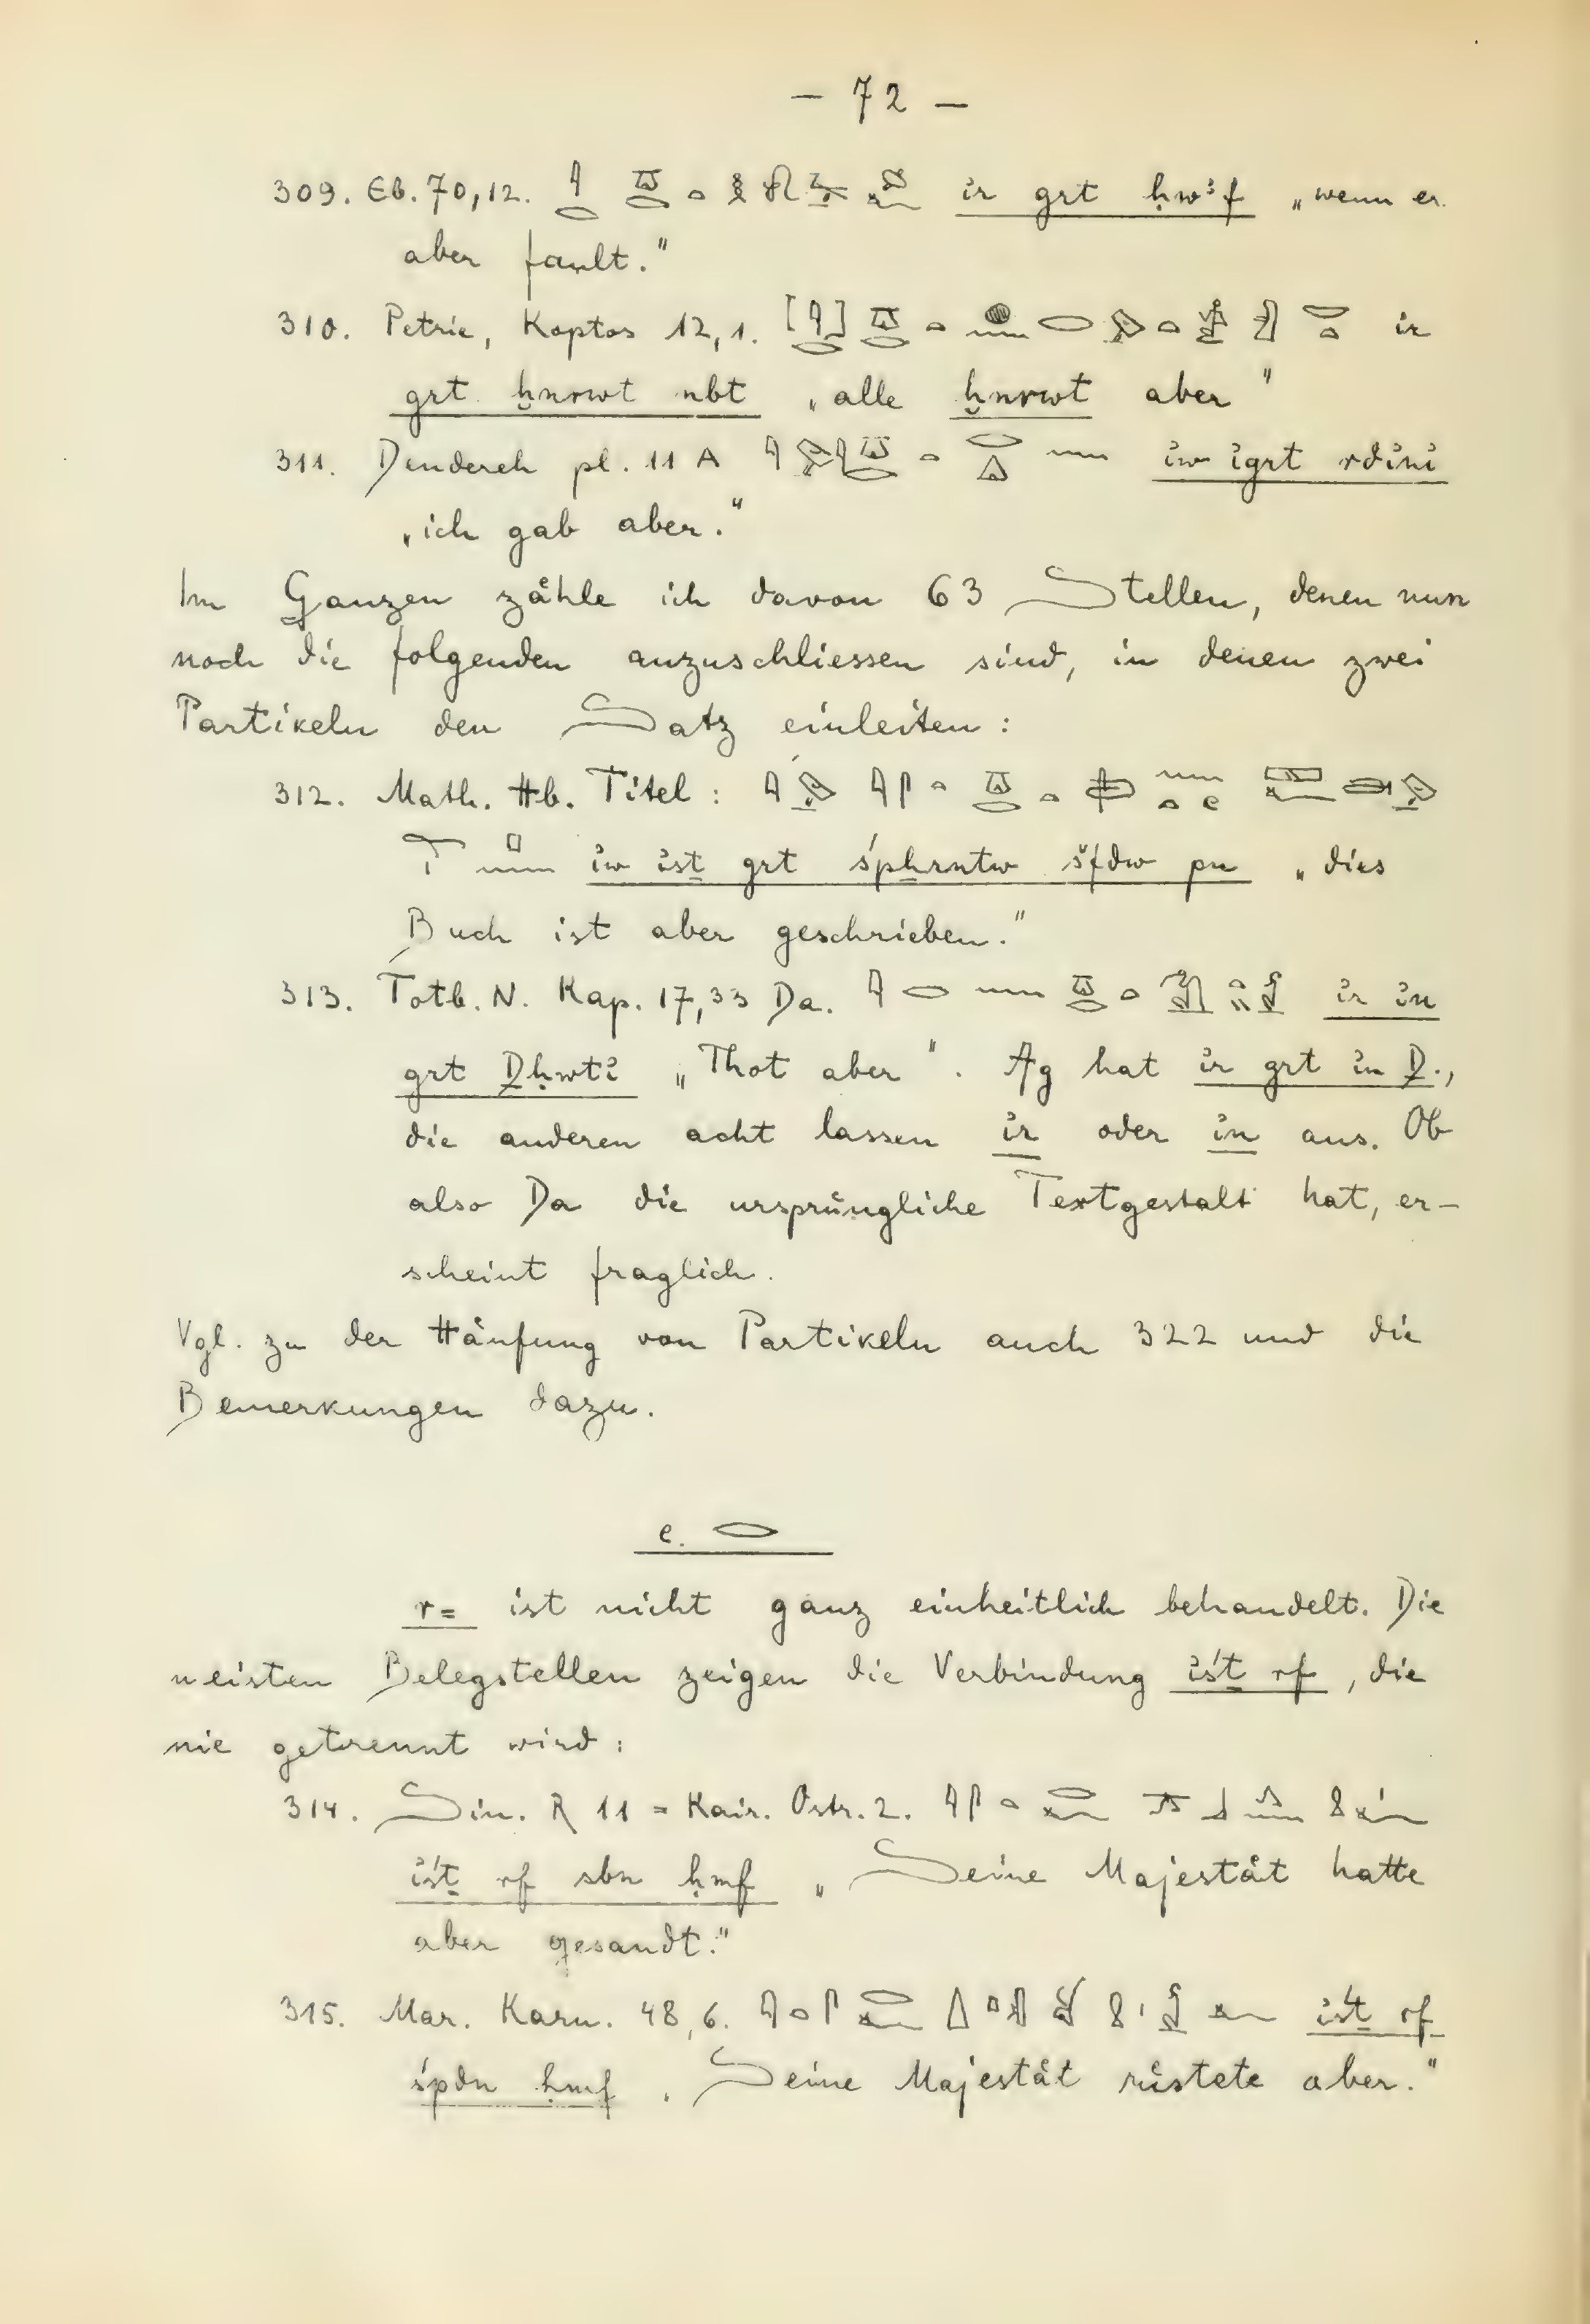 — 72 —
309. Eb. 70,12. ỉr grt ḥwꜣf „wenn er
aber fault."
310. Petrie, Koptos 12,1. ỉr
grt ḫnrwt nbt „alle ḫnrwt aber"
311. Dendereh pl. 11 A ỉw ỉgrt rdỉnỉ
„ich gab aber."
Im Ganzen zähle ich davon 63 Stellen, denen nun
noch die folgenden anzuschliessen sind, in denen zwei
Partikeln den Satz einleiten:
312. Math. Hb. Titel:
ỉw ỉśṯ grt śpẖrntw šfdw pn „dies
Buch ist aber geschrieben."
313. Totb. N. Kap. 17,33 Da. ỉr ỉn
grt Ḏḥwtỉ „Thot aber". Ag hat ỉr grt ỉn Ḏ.,
die anderen acht lassen ỉr oder ỉn aus. Ob
also Da die ursprüngliche Textgestalt hat, er-
scheint fraglich.
Vgl. zu der Häufung von Partikeln auch 322 und die
Bemerkungen dazu.
e. 𓂋
r= ist nicht ganz einheitlich behandelt. Die
meisten Belegstellen zeigen die Verbindung ỉśṯ rf, die
nie getrennt wird:
314. Sin. R 11 = Kair. Ostr. 2.
ỉśṯ rf sbn ḥmf „Seine Majestät hatte
aber gesandt."
315. Mar. Karn. 48,6. ỉśṯ rf
śpdn ḥmf „Seine Majestät rüstete aber."